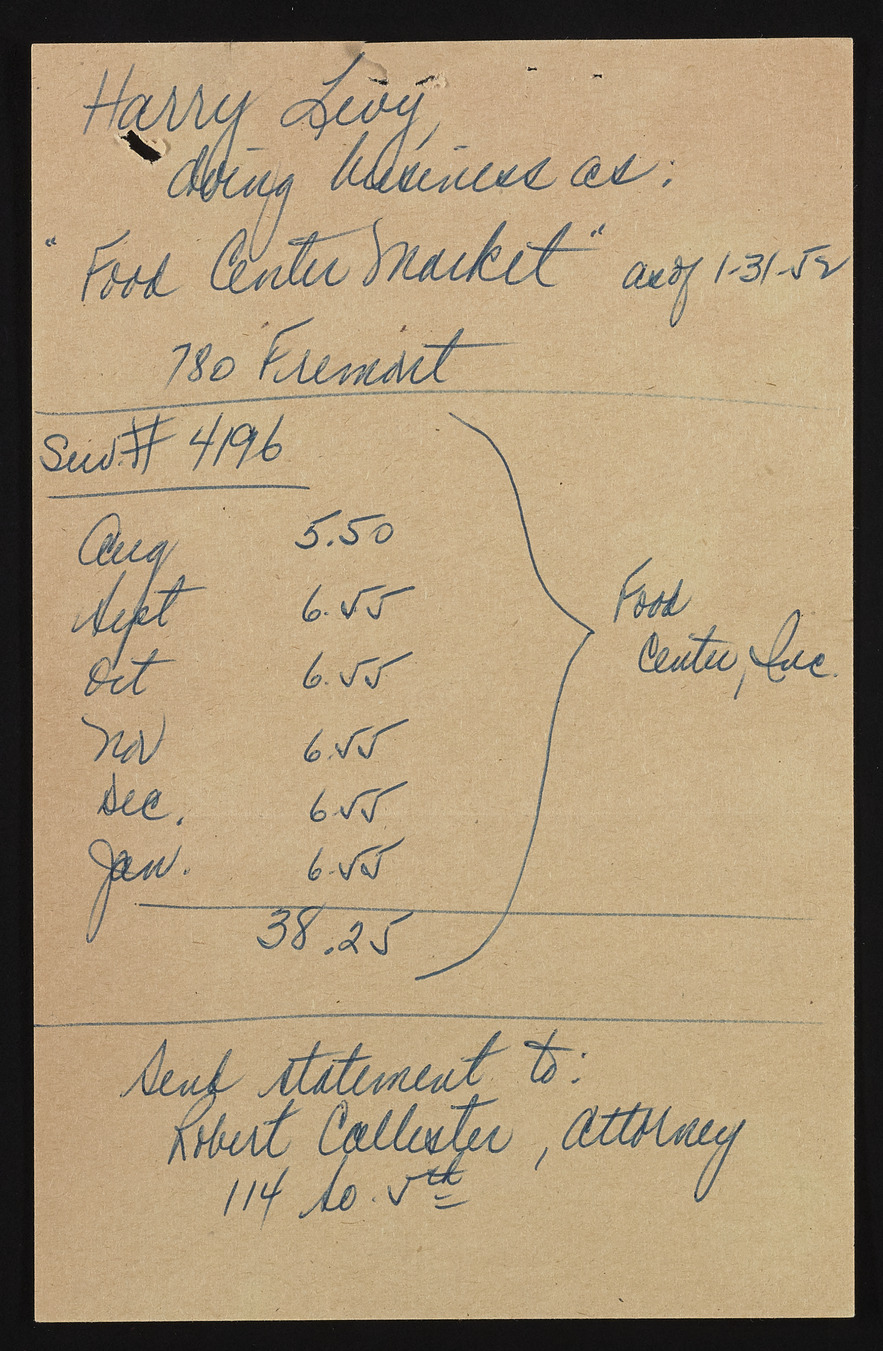 Harry Levy,
doing business as:
"Food Center Market" as of 1-31-52
780 Fremont
Serv.# 4196
Aug 5.50
Sept 6.55
Oct 6.55
Nov 6.55
Dec. 6.55
Jan. 6.55
38.25
Food
Center, Inc.
Send statement to:
Robert Callister, Attorney
114 So. 5th